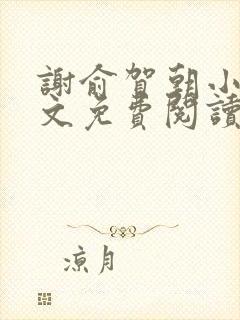 謝俞賀朝小
文免費閱讀
涼月